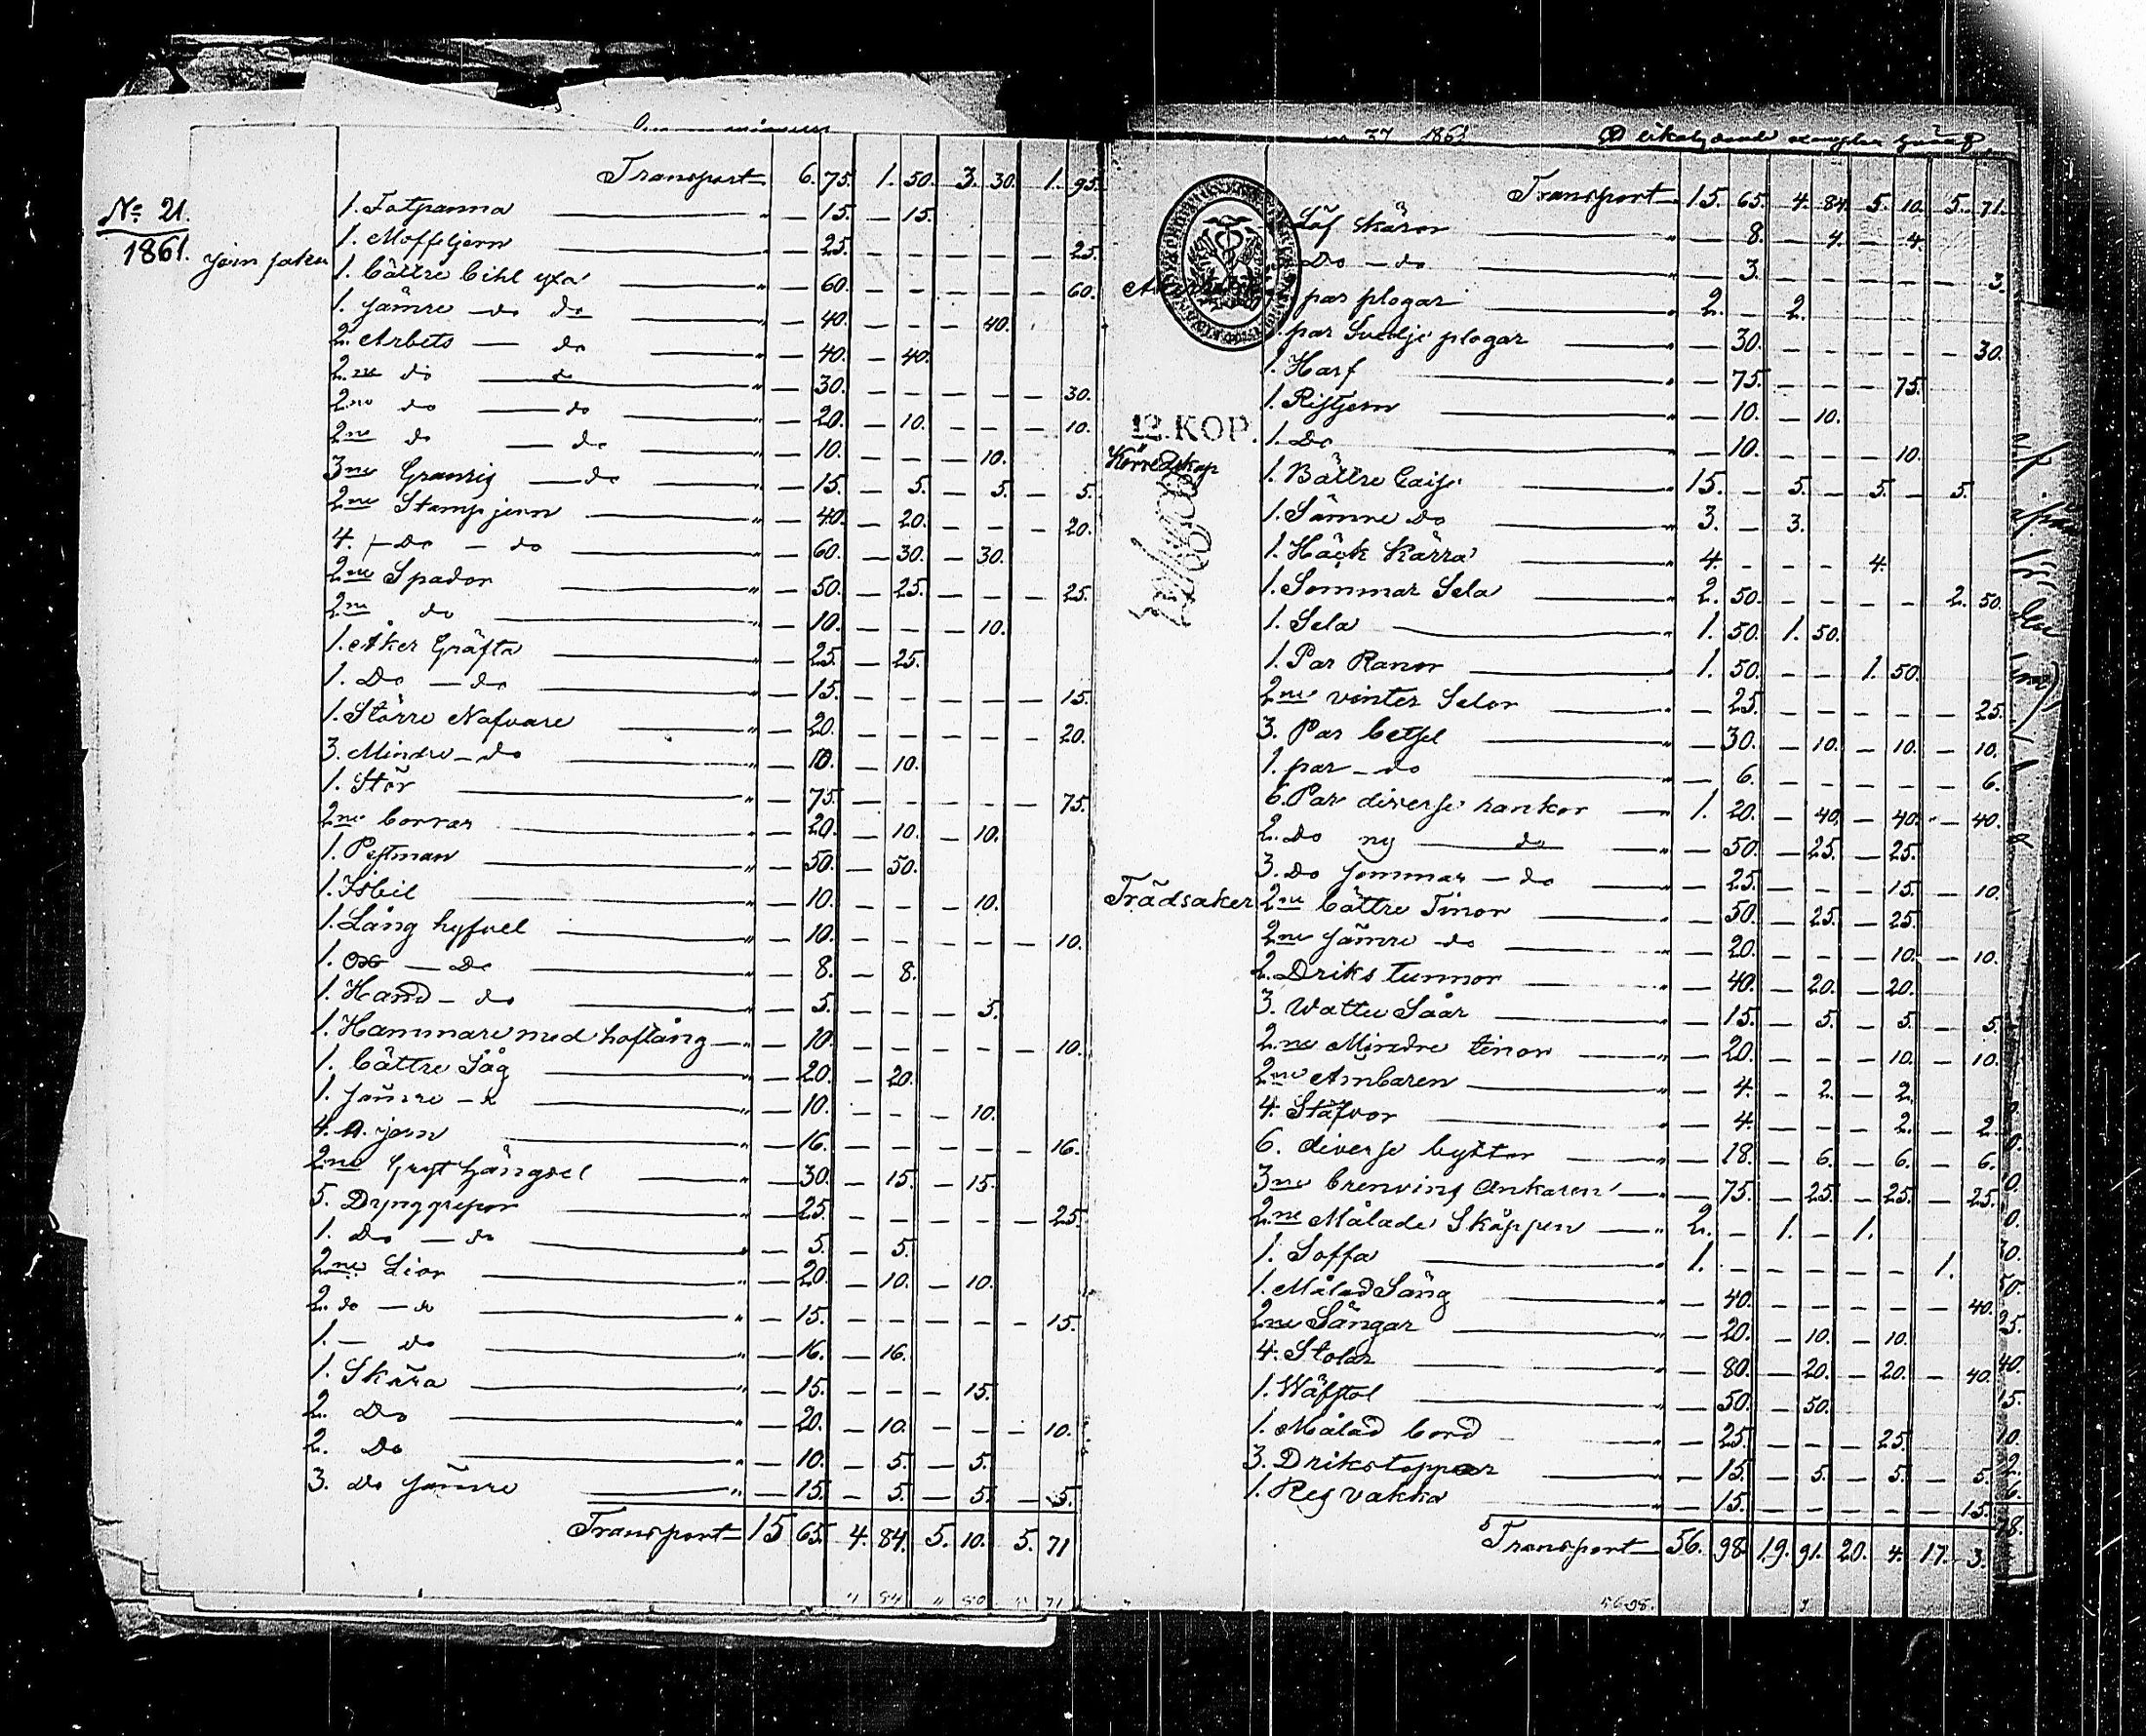 No 21.
1861.
Transport 6. 75. 1. 50. 3. 30. 1. 95.
1. Fatpanna " — 15. — 15.
Jern saker
1. Moffeljern " — 25. — — — — — 25.
1. bättre bihl yxa " — 60. — — — — — 60.
1. sämre do do " — 40. — — — 40.
2. Arbets — do " — 40. — 40.
2ne do — do " — 30. — — — — — 30.
2ne do — do " — 20. — 10. — — — 10.
2ne do — do " — 10. — — — 10.
3ne Granris — do " — 15. — 5. — 5. — 5.
2ne Stampjern " — 40. — 20. — — — 20.
4. — do — do " — 60. — 30. — 30.
2ne Spador " — 50. — 25. — — — 25.
2ne do " — 10. — — — 10.
1. Åker Gräfta " — 25. — 25.
1. Do — do " — 15. — — — — — 15.
1. Större Nafvare " — 20. — — — — — 20.
3. Mindre — do " — 10. — 10.
1. Stör " — 75. — — — — — 75.
2ne borrar " — 20. — 10. — 10.
1. Pestman " — 50. — 50.
1. Isbil " — 10. — — — 10.
1. Lång hyfvel " — 10. — — — — — 10.
1. — Do " — 8. — 8.
1. Hand — do " — 5. — — — 5.
1. Hammare med hoftång " — 10. — — — — — 10.
1. bättre Såg " — 20. — 20.
1. sämre — " — 10. — — — 10.
4. jern " — 16. — — — — — 16.
2ne Gryt hängsel " — 30. — 15. — 15.
5. Dynggrepor " — 25. — — — — — 25.
1. Do — do " — 5. — 5.
2ne Lior " — 20. — 10. — 10.
2. do — do " — 15. — — — — — 15.
1. — do " — 16. — 16.
1. Skära " — 15. — — — 15.
2. Do " — 20. — 10. — — — 10.
2. Do " — 10. — 5. — 5.
3. Do sämre " — 15. — 5. — 5. — 5.
Transport 15 65. 4. 84. 5. 10. 5. 71
37 1861
Transport 15. 65. 4. 84. 5. 10. 5. 71.
Löf skäror " — 8. — 4. — 4.
Do — do " — 3. — — — — — 3.
par plogar " 2. — 2.
par Svedje plogar " — 30. — — — — — 30.
1. Harf " — 75. — — — 75.
1. Ristjern " — 10. — 10.
12. KOP.
1. Do " — 10. — — — 10.
Körredskap
1. Bättre Caise " 15. — 5. — 5. — 5.
1. Sämre do " 3. — 3.
1. Häck Kärra " 4. — — — 4.
1. Sommar Sela " 2. 50. — — — — 2. 50.
1. Sela " 1. 50. 1. 50.
1. Par Ranor " 1. 50. — — 1. 50.
2ne vinter Selor " — 25. — — — — — 25.
3. Par betsel " — 30. — 10. — 10. — 10.
1. par — do " — 6. — — — — — 6.
6. Par diverse rankor " 1. 20. — 40. — 40. — 40.
2. Do ny — do " — 50. — 25. — 25.
3. Do sommar — do " — 25. — — — 15. — 10.
Trädsaker
2ne bättre Tinor " — 50. — 25. — 25.
2ne sämre do " — 20. — — — 10. — 10.
2. Driks tunnor " — 40. — 20. — 20.
3. Watten Såar " — 15. — 5. — 5. — 5.
2ne Mindre tinor " — 20. — — — 10. — 10.
2ne Ämbaren " — 4. — 2. — 2.
4. Stäfvor " — 4. — — — 2. — 2.
6. diverse byttor " — 18. — 6. — 6. — 6.
3ne brenvins Ankaren " — 75. — 25. — 25. — 25.
2ne Målade Skåppen " 2. — 1. — 1.
1. Soffa " 1. — — — — — 1.
1. Målad Säng " — 40. — — — — — 40.
2ne Sängar " — 20. — 10. — 10.
4. Stolar " — 80. — 20. — 20. — 40.
1. Wäfstol " — 50. — 50.
1. Målad bord " — 25. — — — 25.
3. Drikstoppar " — 15. — 5. — 5. — 5.
1. Reg vakka " — 15. — — — — — 15.
Transport 56. 98. 19. 91. 20. 4. 17. 3.